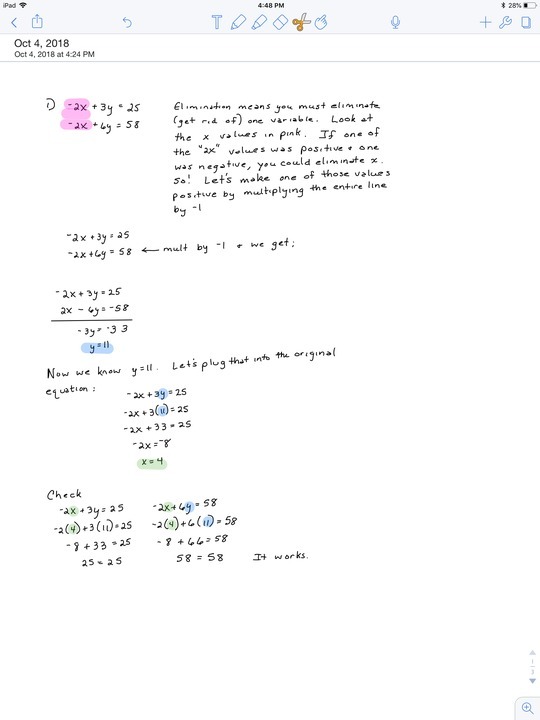 iPad
4:48 PM
28%
Oct 4, 2018
Oct 4, 2018 at 4:24 PM
1) -2x + 3y = 25
-2x + 6y = 58
Elimination means you must eliminate
(get rid of) one variable. Look at
the x values in pink. If one of
the "2x" values was positive + one
was negative, you could eliminate x.
So! Let's make one of those values
positive by multiplying the entire line
by -1
-2x + 3y = 25
-2x + 6y = 58 ← mult by -1 + we get;
-2x + 3y = 25
2x - 6y = -58
-3y = -33
y = 11
Now we know y = 11. Let's plug that into the original
equation:
-2x + 3y = 25
-2x + 3(11) = 25
-2x + 33 = 25
-2x = -8
x = 4
Check
-2x + 3y = 25
-2(4) + 3(11) = 25
-8 + 33 = 25
25 = 25
-2x + 6y = 58
-2(4) + 6(11) = 58
-8 + 66 = 58
58 = 58
It works.
1
3